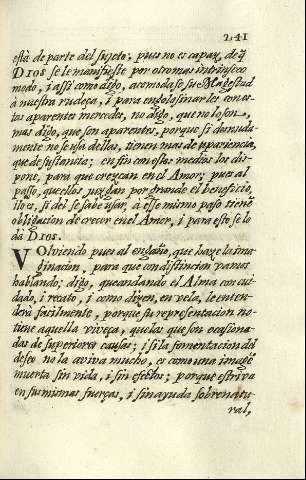 241
està de parte del sujeto; pues no es capaz, de q̃
DIOS se le manifieste por otro mas intrinseco
modo, i assì como digo, acomodase su Magestad
à nuestra rudeça, i para engolosinarles con es-
tos aparentes mercedes, no digo, que no lo son,
mas digo, que son aparentes, porque si desnuda-
mente no se usa dellas, tienen mas de apariencia,
que de sustancia; en fin con estos medios los dis-
pone, para que crezcan en el Amor; pues al
passo, que ellos juzgan por grande el beneficio,
i lo es, si dèl se sabe usar, à esse mismo paso tienẽ
obligacion de crecer en el Amor, i para esto se lo
dà DIOS.
VOlviendo pues al engaño, que haze la ima-
ginacion, para que con distincion vamos
hablando; digo, que andando el Alma con cui-
dado, i recato, i como dizen, en vela, le enten-
derà facilmente, porque su representacion no
tiene aquella viveça, que las que son ocasiona-
das de superiores causas; i si la fomentacion del
deseo no la aviva mucho, es como una imagẽ
muerta sin vida, i sin efectos; porque estriva
en sus mismas fuerças, i sin ayuda sobrenatu-
ral,